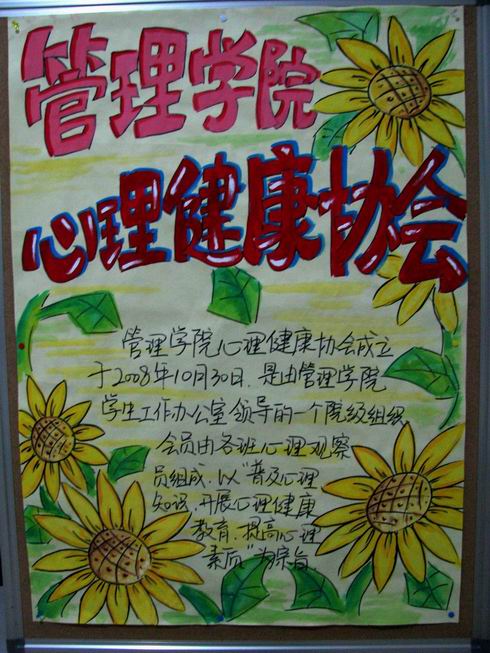 管理学院
心理健康协会
管理学院心理健康协会成立
于2008年10月30日.是由管理学院
学生工作办公室领导的一个院级组织
会员由各班心理观察
员组成.以"普及心理
知识.开展心理健康
教育.提高心理
素质"为宗旨.